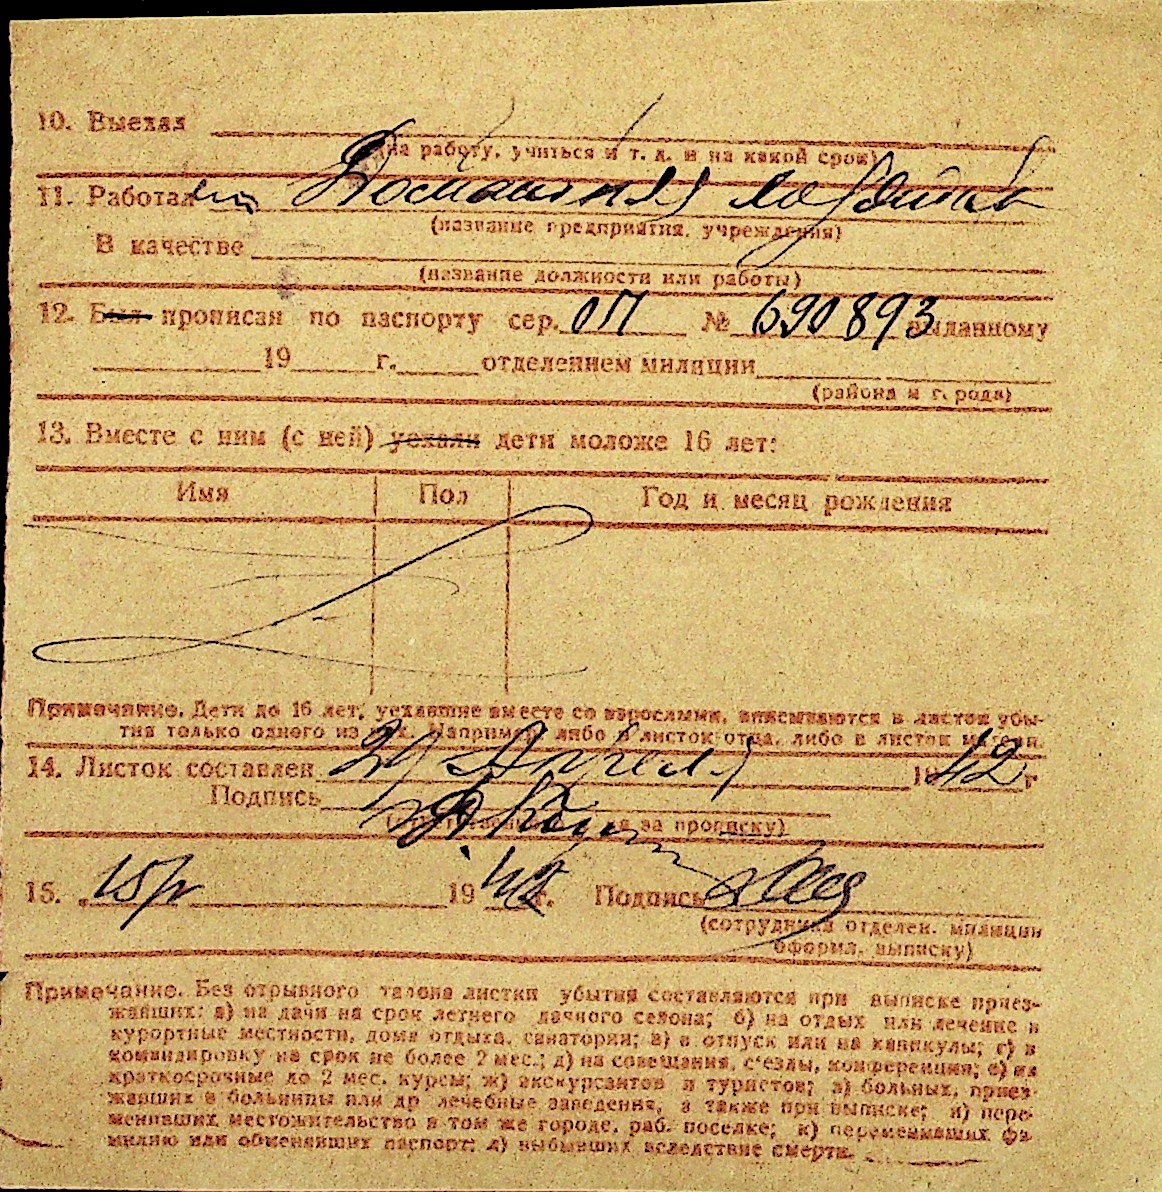 10. Выехал
(на работу, учиться и т. д. и на какой срок)
11. Работал Домашняя хозяйка
(название предприятия, учреждения)
В качестве
(название должности или работы)
12. Был прописан по паспорту сер. ОП № 690893 выданному
19 г. отделением милиции
(района и города)
13. Вместе с ним (с ней) уехали дети моложе 16 лет:
Имя Пол Год и месяц рождения
Примечание. Дети до 16 лет, уехавшие вместе со взрослыми, вписываются в листок убы-
тия только одного из них. Например либо в листок отца, либо в листок матери.
14. Листок составлен 29 Апреля 1942 г
Подпись
за прописку)
15. 19 42 г. Подпись
(сотрудника отделен. милиции
оформил. выписку)
Примечание. Без отрывного талона листки убытия составляются при выписке приез-
жавших: а) на дачи на срок летнего дачного сезона; б) на отдых или лечение в
курортные местности, дома отдыха, санатории; в) в отпуск или на каникулы; г) в
командировку на срок не более 2 мес.; д) на совещания, с'езды, конференции; е) на
краткосрочные до 2 мес. курсы; ж) экскурсантов и туристов; з) больных, приез-
жавших в больницы или др лечебные заведения, а также при выписке; и) пере-
менивших местожительство в том же городе, раб. поселке; к) переменивших фа-
милию или обменявших паспорт; л) выбывших вследствие смерти.